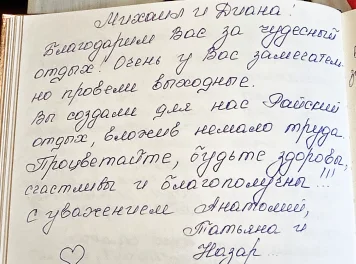 Михаил и Диана!
Благодарим Вас за чудесный
отдых! Очень у Вас замечатель-
но провели выходные.
Вы создали для нас Райский
отдых, вложив немало труда.
Процветайте, будьте здоровы,
счастливы и благополучны!!!
с уважением Анатолий,
Татьяна и
Назар